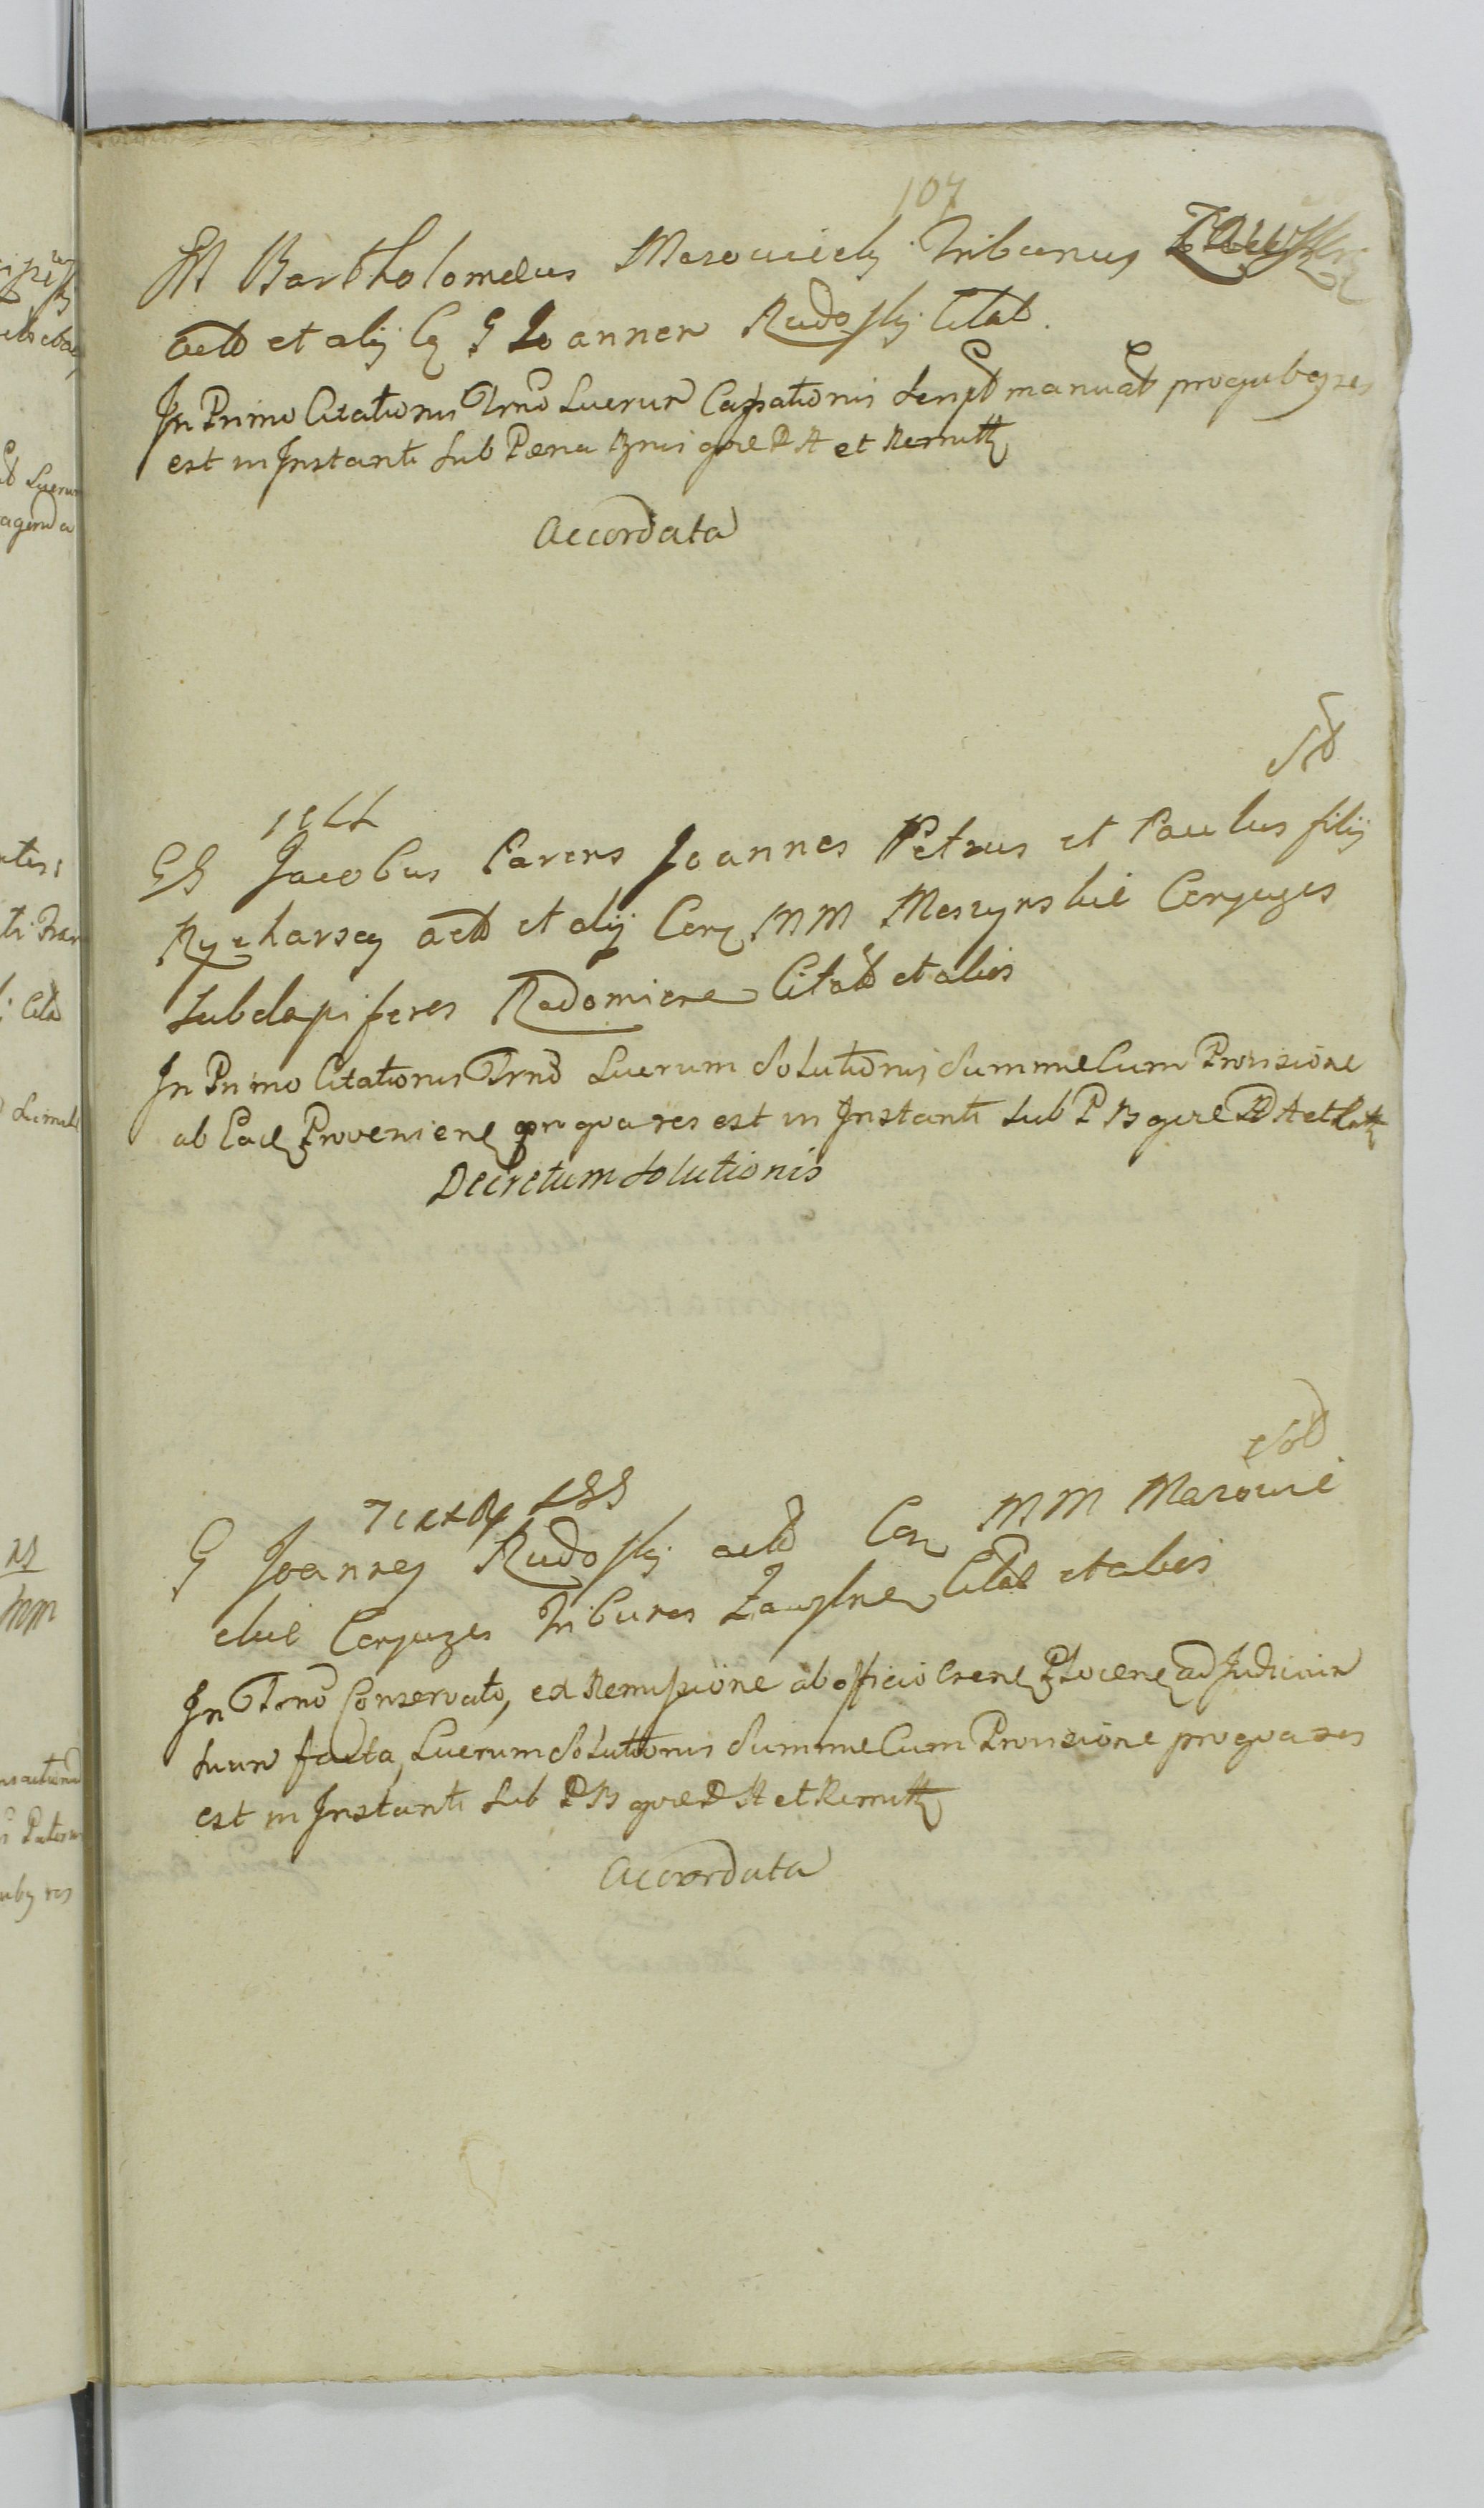 107
M Bartholomeus Mazowiecky Tribunus
act et alij C G Joannen Rudosky Citat.
In Primo Citationis Trno Luerun Cassationis Script manuat pro quib9 res
est in Instanti Sub Pena Bnis qve D A et Remitt
Accordata
GG Jacobus Parens Joannes Petrus et Paulus filij
Rycharscy act et alij Con MM Meszynskie Conjuges
Subdapiferes Radomiens Citat et alios
In Primo Citationis Trno Luerum Solutionis Summe Cum Provisione
ab Ead Provenien pro qva res est in Instanti Sub P B qve D A et
Decretum Solutionis
G Joannes Rudosky act Con MM Mazowie
ckie Conjuges Tribunos Zawskrn Citat et alios
In Trno Conservato, ex Remissione ab officio Crens Plocens ad Judiciun
suun facta, Luerum Solutionis Summe Cum Provisione pro qva res
est in Instanti Sub P B qve D A et Remitt
Accordata